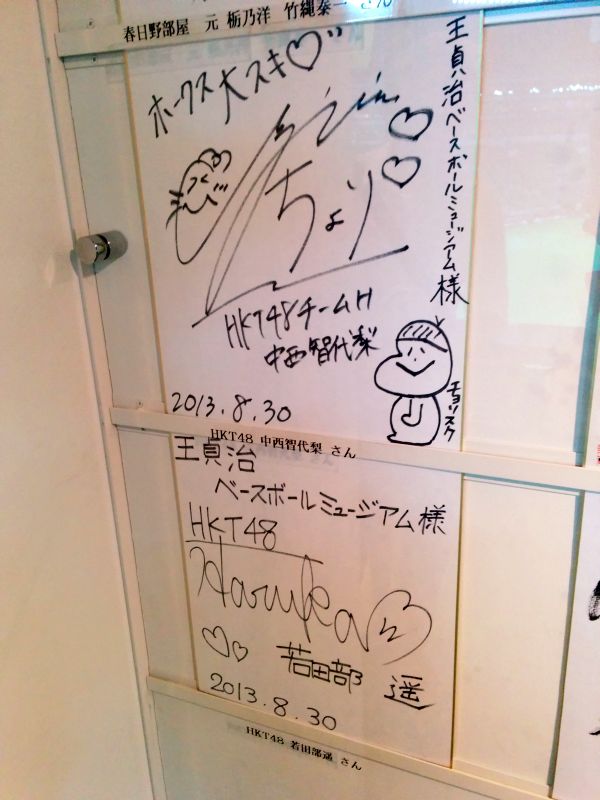 春日野部屋 元 栃乃洋 竹縄泰一 さん
ホークス大スキ♡
王貞治ベースボールミュージアム様
ちより
HKT48チームH
中西智代梨
チョリスケ
2013.8.30
HKT48 中西智代梨 さん
王貞治
ベースボールミュージアム様
HKT48
Haruka
若田部 遥
2013.8.30
HKT48 若田部遥 さん